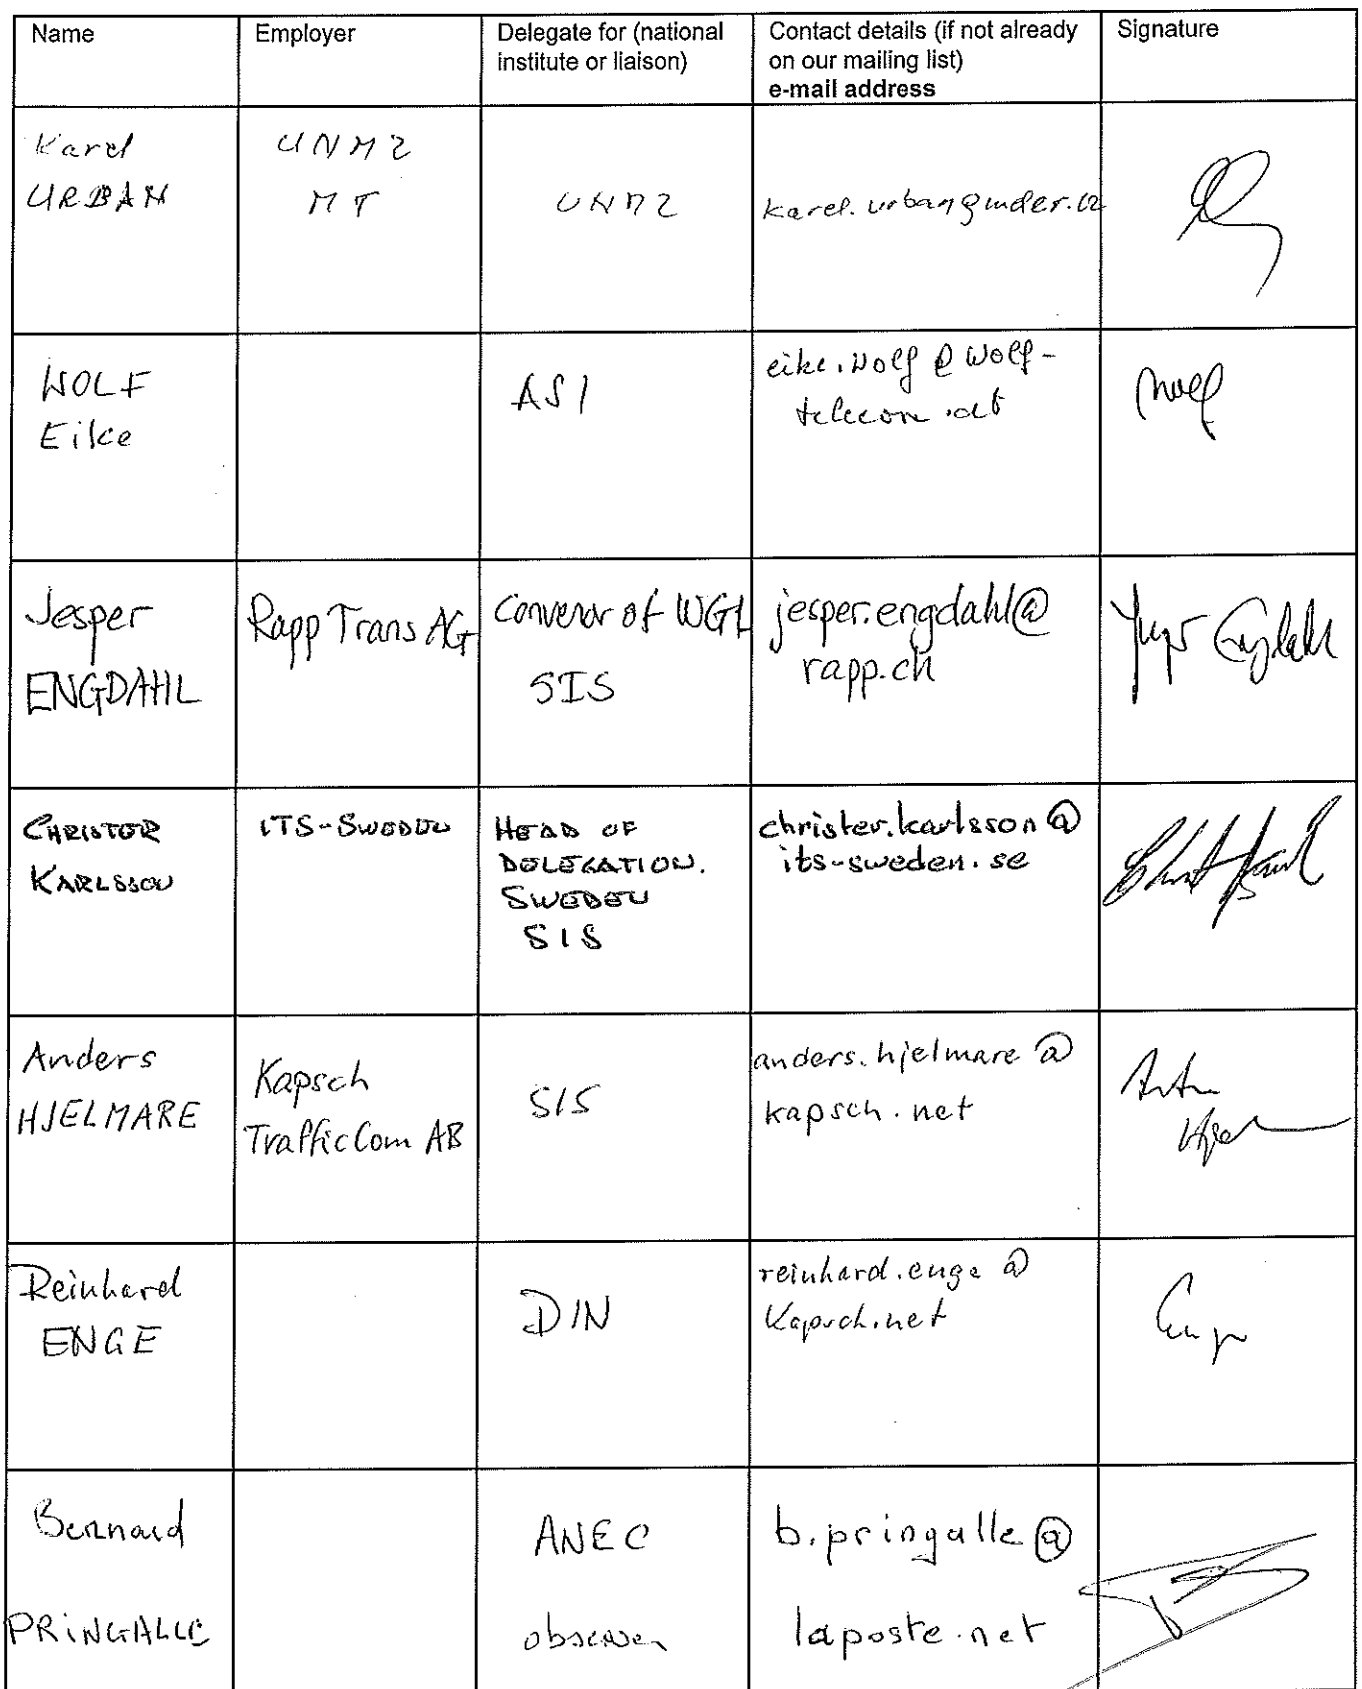 Name
Employer
Delegate for (national
institute or liaison)
Contact details (if not already
on our mailing list)
e-mail address
Signature
Karel
URBAN
UNMZ
MT
UNMZ
WOLF
Eike
ASI
eike.wolf @ wolf-
telecom.at
Wolf
Jesper
ENGDAHL
Rapp Trans AG
Convenor of WG1
SIS
jesper.engdahl@
rapp.ch
Jesper Engdahl
CHRISTER
KARLSSON
ITS-SWEDEN
HEAD OF
DELEGATION.
SWEDEN
SIS
christer.karlsson@
its-sweden.se
Anders
HJELMARE
Kapsch
TrafficCom AB
SIS
anders.hjelmare @
kapsch.net
Reinhard
ENGE
DIN
reinhard.enge @
Kapsch.net
Enge
Bernard
PRINGALLE
ANEC
observer
b.pringalle @
laposte.net